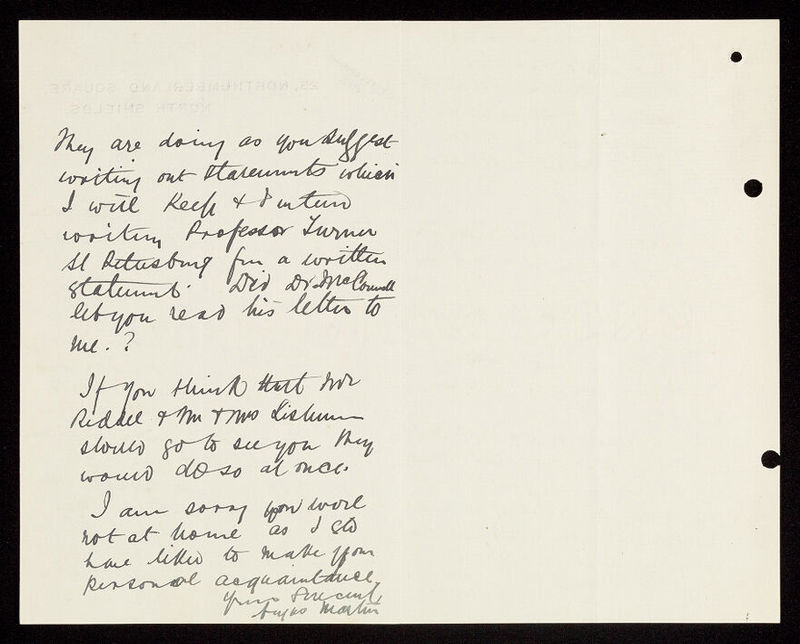 25, NORTHUMBERLAND SQUARE,
NORTH SHIELDS.
They are doing as you suggest
writing out statements which
I will keep & I intend
writing Professor Turner
St Petersburg for a written
statement. Did Dr McConnell
let you read his letter to
me.?
If you think that Mr
Riddell & Mr & Mrs Lishman
should go to see you they
would do so at once.
I am sorry you were
not at home as I shd
have liked to make your
personal acquaintance.
Yours Sincerely
Angus Martin